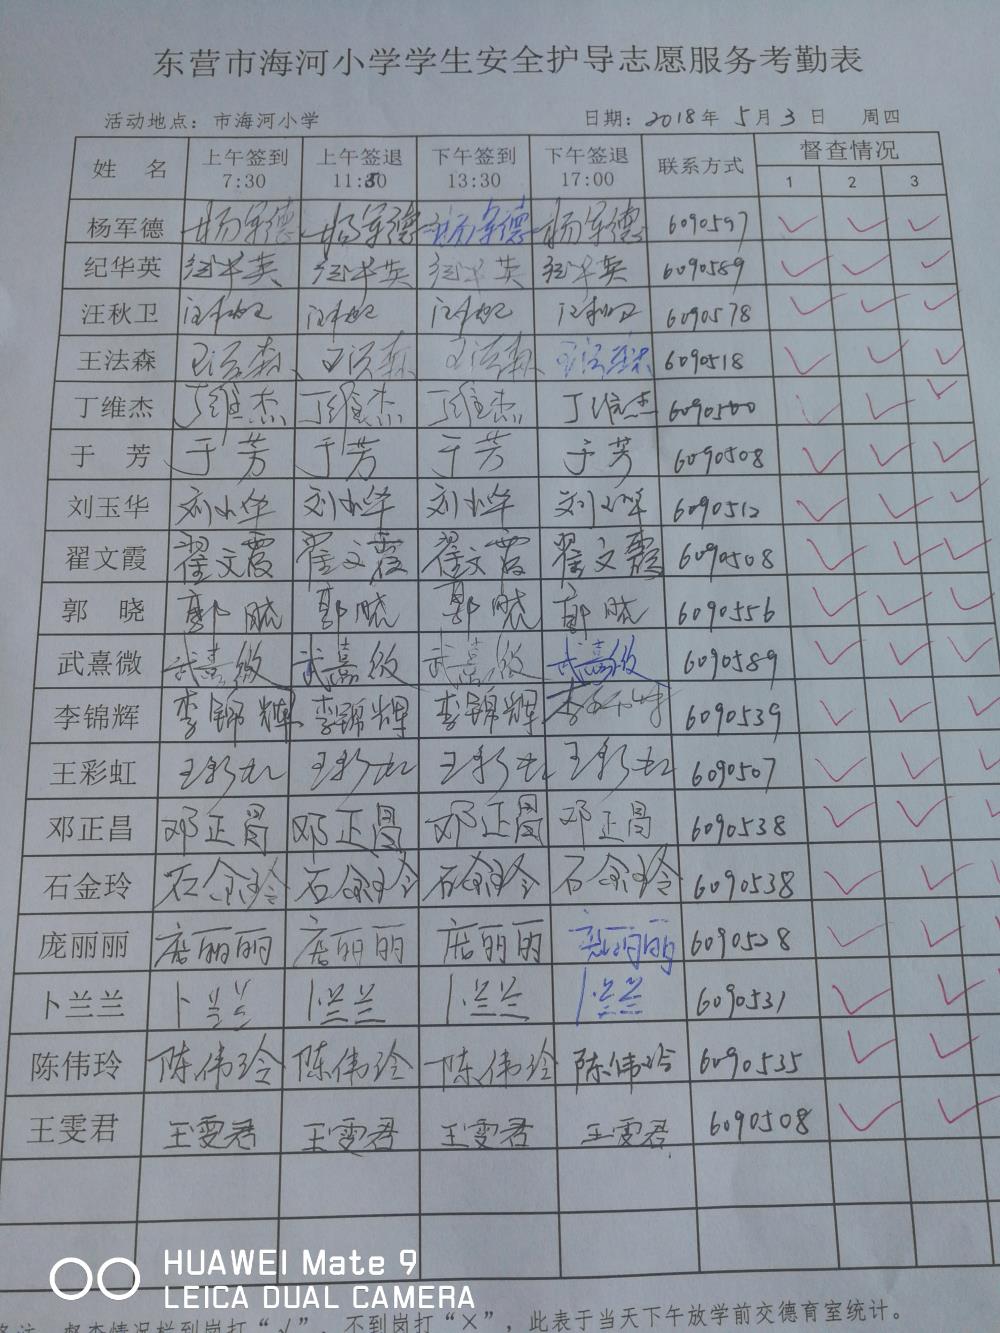 东营市海河小学学生安全护导志愿服务考勤表
活动地点：市海河小学 日期：2018年 5月 3日 周四
姓 名 上午签到 7:30 上午签退 11:50 下午签到 13:30 下午签退 17:00 联系方式 督查情况 1 2 3
杨军德 杨军德 杨军德 杨军德 杨军德 6090597 ✓ ✓ ✓
纪华英 纪华英 纪华英 纪华英 纪华英 6090589 ✓ ✓ ✓
汪秋卫 汪秋卫 汪秋卫 汪秋卫 汪秋卫 6090578 ✓ ✓ ✓
王法森 王法森 王法森 王法森 王法森 6090518 ✓ ✓ ✓
丁维杰 丁维杰 丁维杰 丁维杰 丁维杰 6090500 ✓ ✓ ✓
于 芳 于芳 于芳 于芳 于芳 6090508 ✓ ✓ ✓
刘玉华 刘玉华 刘玉华 刘玉华 刘玉华 6090512 ✓ ✓ ✓
翟文霞 翟文霞 翟文霞 翟文霞 翟文霞 6090508 ✓ ✓ ✓
郭 晓 郭晓 郭晓 郭晓 郭晓 6090556 ✓ ✓ ✓
武熹微 武熹微 武熹微 武熹微 武熹微 6090589 ✓ ✓ ✓
李锦辉 李锦辉 李锦辉 李锦辉 6090539 ✓ ✓ ✓
王彩虹 王彩虹 王彩虹 王彩虹 王彩虹 6090507 ✓ ✓ ✓
邓正昌 邓正昌 邓正昌 邓正昌 邓正昌 6090538 ✓ ✓ ✓
石金玲 石金玲 石金玲 石金玲 石金玲 6090538 ✓ ✓ ✓
庞丽丽 庞丽丽 庞丽丽 庞丽丽 庞丽丽 6090528 ✓ ✓ ✓
卜兰兰 卜兰兰 卜兰兰 卜兰兰 卜兰兰 6090531 ✓ ✓
陈伟玲 陈伟玲 陈伟玲 陈伟玲 陈伟玲 6090535 ✓ ✓
王雯君 王雯君 王雯君 王雯君 王雯君 6090508 ✓ ✓
督查情况栏到岗打“√”，不到岗打“×”，此表于当天下午放学前交德育室统计。
HUAWEI Mate 9
LEICA DUAL CAMERA